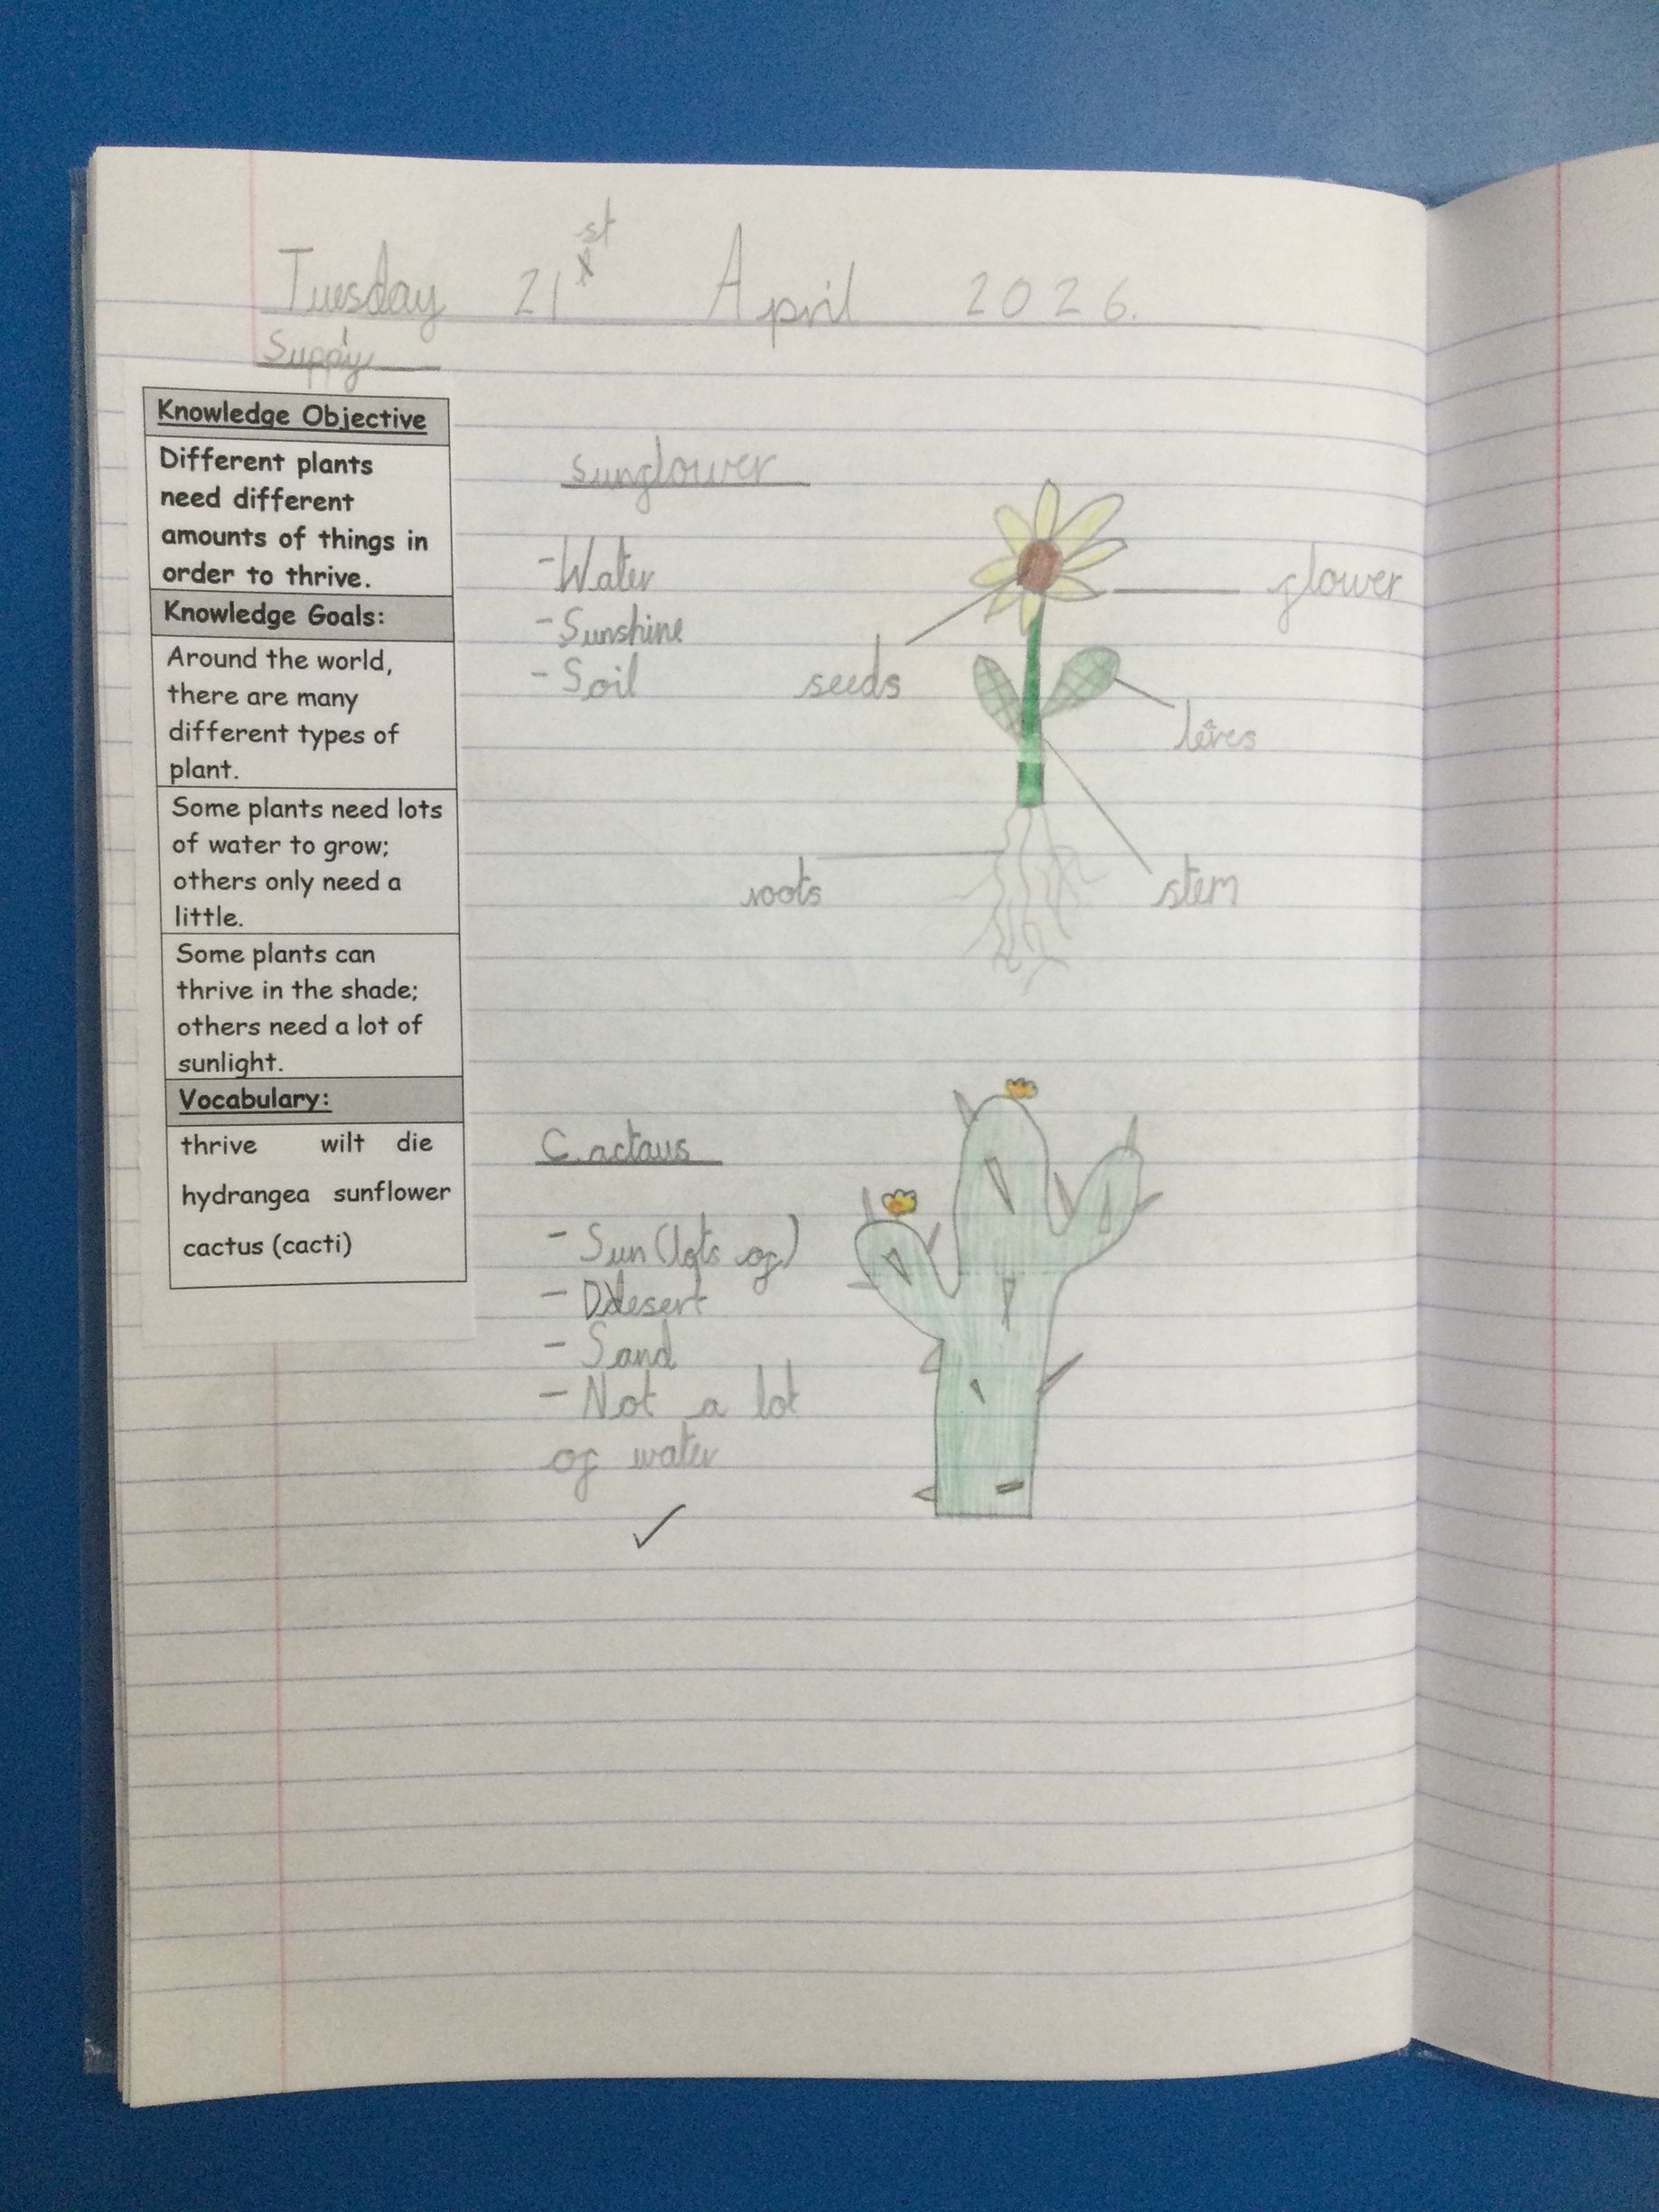 Tuesday 21st April 2026.
Supply
Knowledge Objective
Different plants
need different
amounts of things in
order to thrive.
Knowledge Goals:
Around the world,
there are many
different types of
plant.
Some plants need lots
of water to grow;
others only need a
little.
Some plants can
thrive in the shade;
others need a lot of
sunlight.
Vocabulary:
thrive wilt die
hydrangea sunflower
cactus (cacti)
sunflower
- Water
- Sunshine
- Soil
flower
seeds
leves
roots
stem
Cactaus
- Sun (lots of)
- Desert
- Sand
- Not a lot
of water